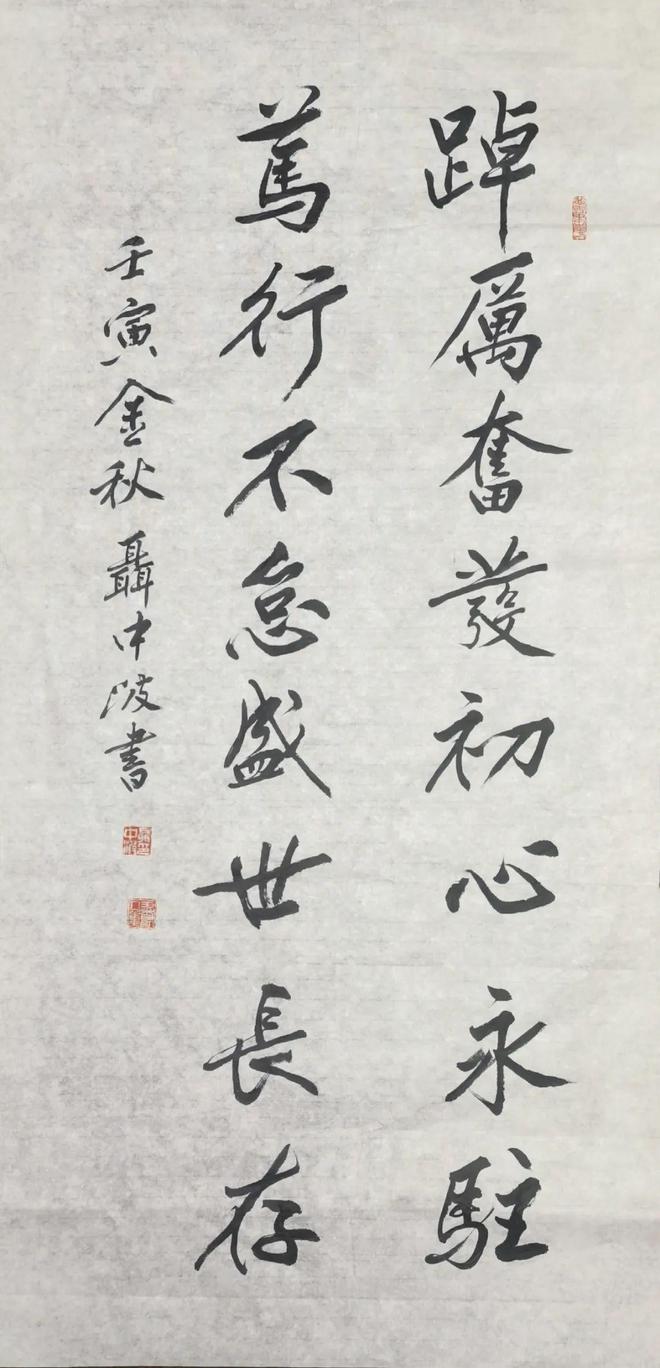 踔厲奮發初心永駐
篤行不怠盛世長存
壬寅金秋聶中陂書